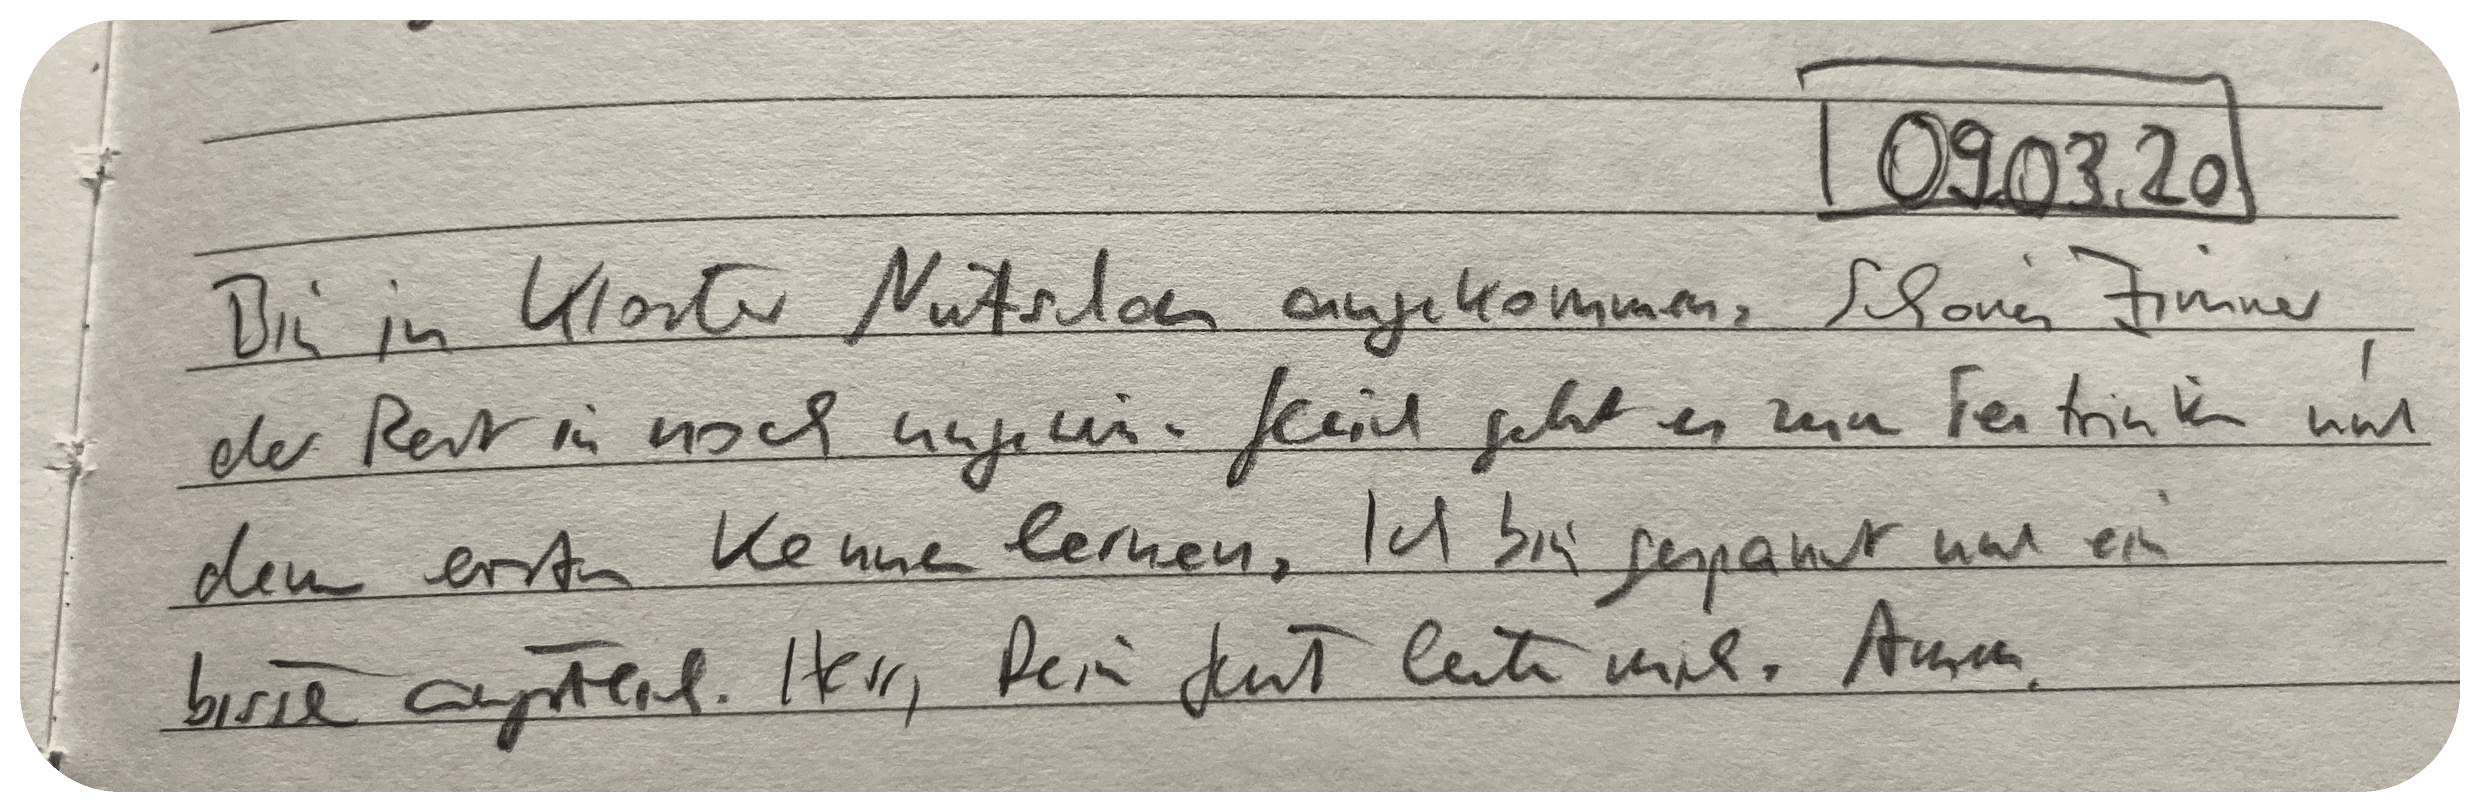 09.03.20
Bin in Kloster Nütschau angekommen. Schönes Zimmer
der Rest ist noch ungewiss. Gleich geht es zum Teetrinken und
dem ersten Kennenlernen. Ich bin gespannt und ein
bisschen ängstlich. Herr, Dein Geist leite mich. Amen.